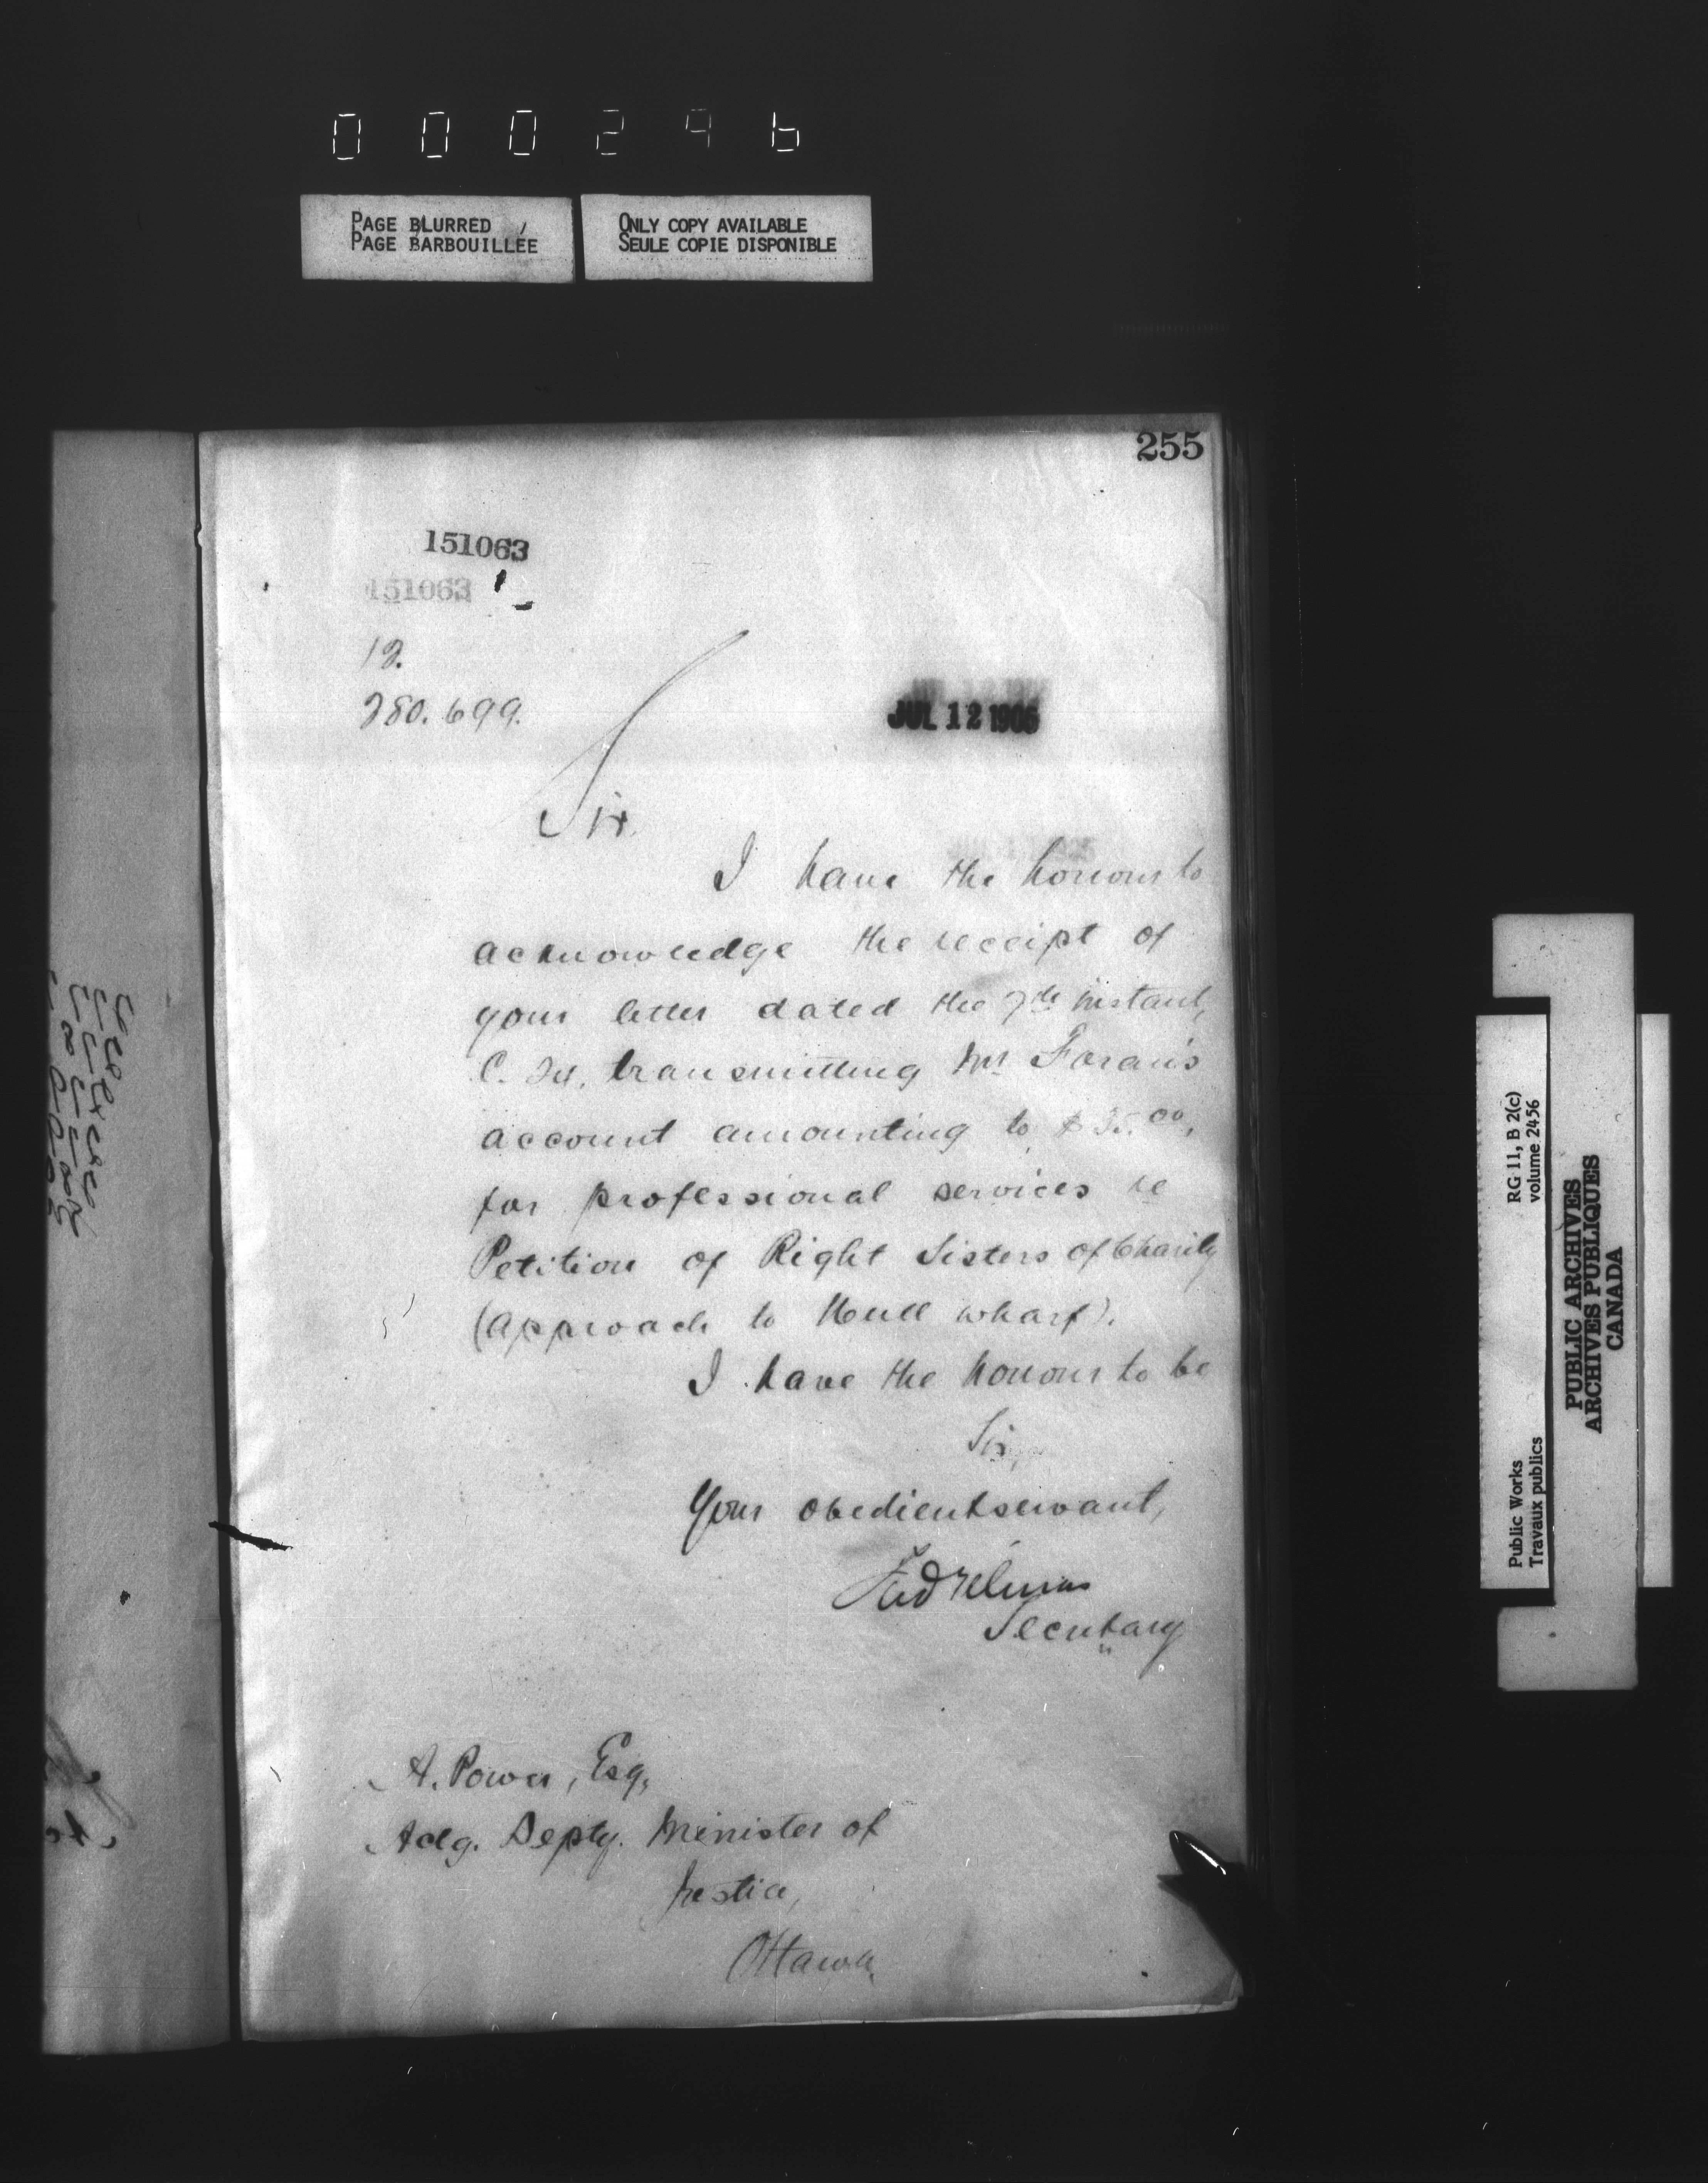 000296
PAGE BLURRED
PAGE BARBOUILLÉE
ONLY COPY AVAILABLE
SEULE COPIE DISPONIBLE
255
151063
151063
12.
280.699.
JUL 12 1906
Sir
I have the honour to
acknowledge the receipt of
your letter dated the 7th instant,
transmitting Mr. Foran's
account amounting to
for professional services re
Petition of Right Sisters of Charity
(approach to Hull wharf).
I have the honour to be
Sir,
Your obedient servant,
Fred Gelinas
Secretary
A. Power, Esq.
Actg. Depty. Minister of
Justice,
Ottawa.
Public Works
Travaux publics
RG 11, B 2(c)
volume 2456
PUBLIC ARCHIVES
ARCHIVES PUBLIQUES
CANADA